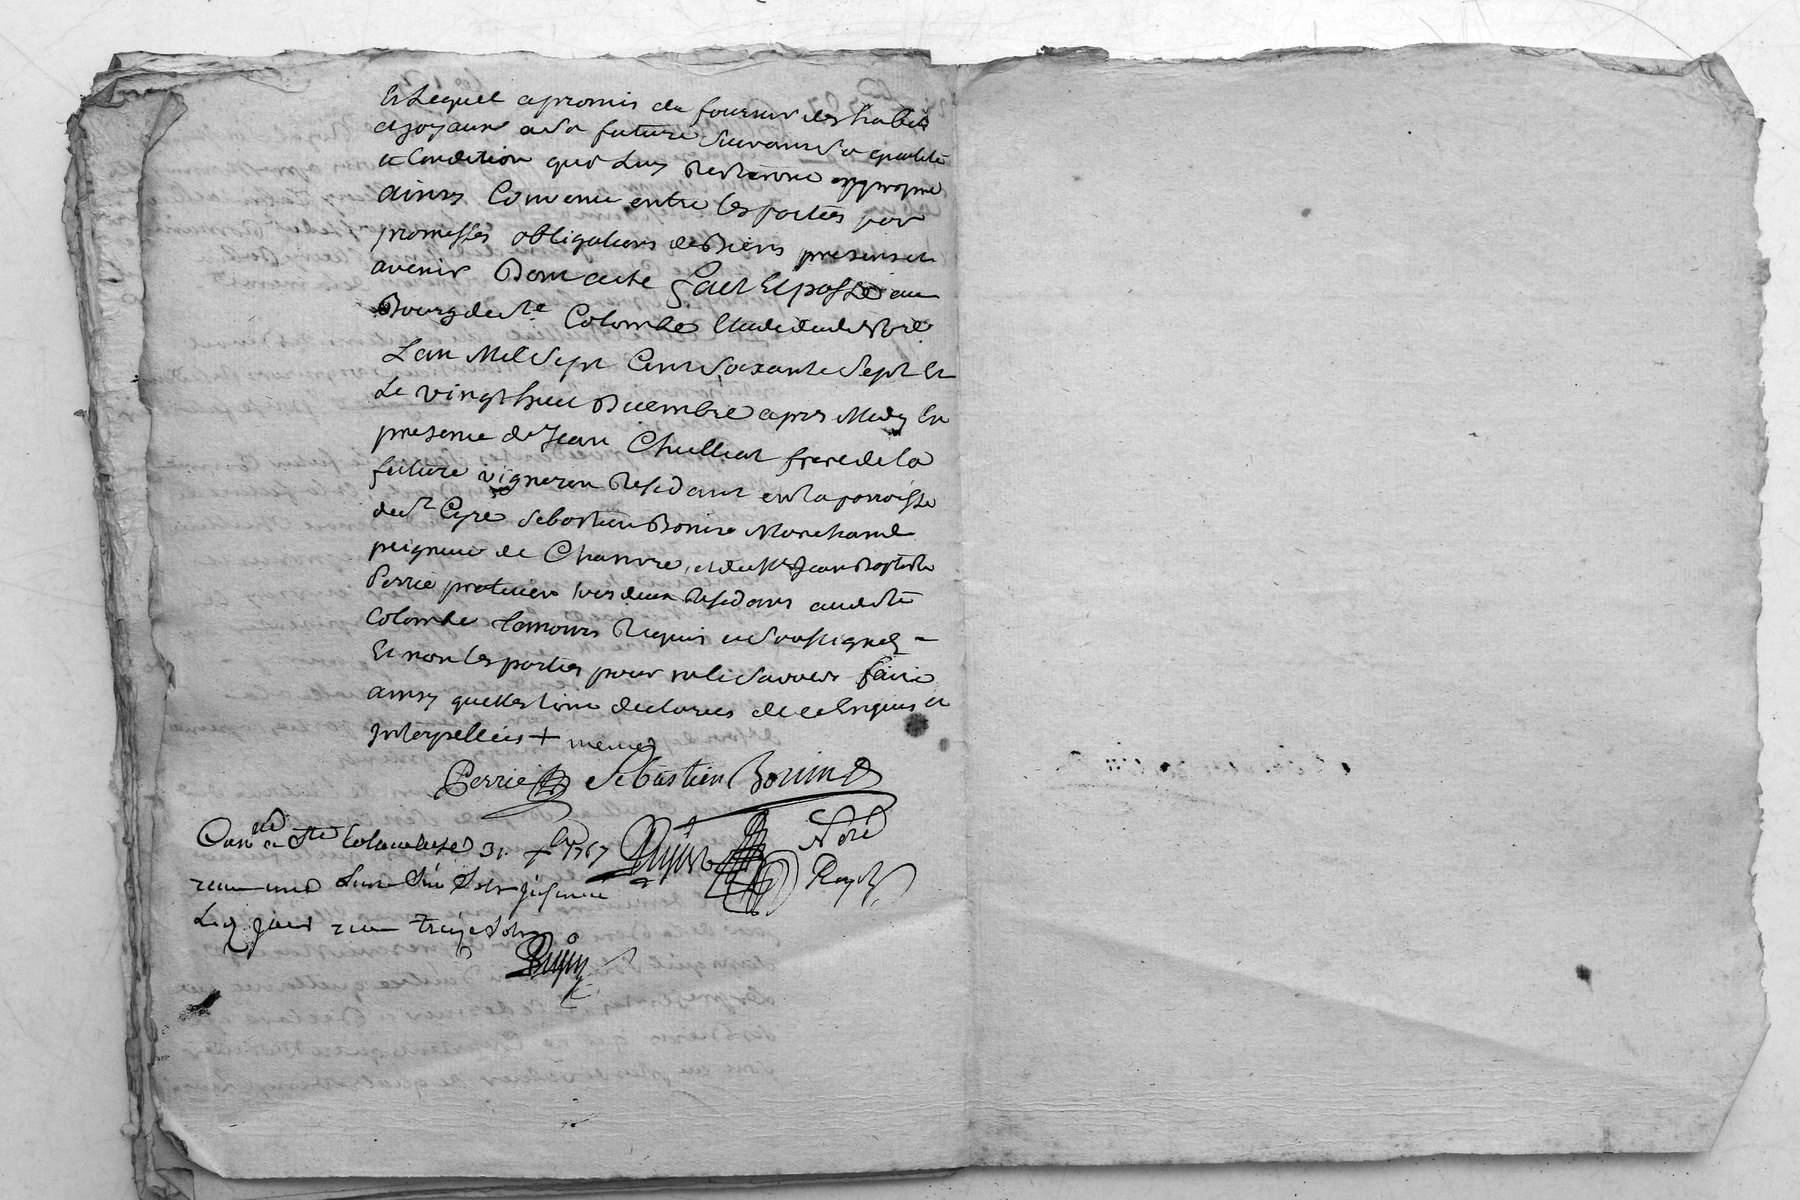 Et Lequel a promis de fournir des habits
et joyaux a sa future suivant sa qualité
et Condition quil Luy
ainsy Convenu entre les parties par
promesses obligations de Biens presens et
avenir Dont acte fait Et passé au
Bourg de Ste Colombe Etude du de Noré
L'an Mil sept Cent soixante sept Et
Le vingt huit Decembre apres Midy En
presence de Jean Chulliat frere de la
future vigneron Residant en la parroisse
de St Cyre Sebastien Bonire Marchand
peigneur de Chanvre, et de Me Jean Baptiste
Perrie praticien tous deux Residans audit Ste
Colombe temoins Requis et Soussignez
Et non les parties pour ne le savoir faire
ainsy quelles lont declarées de ce Enquises et
Interpellées +
Perrie Sebastien Bonin
Con a Ste Colombe le 31 xbre 1767 Noré
recu une Livre Six Sols
recu treize sols